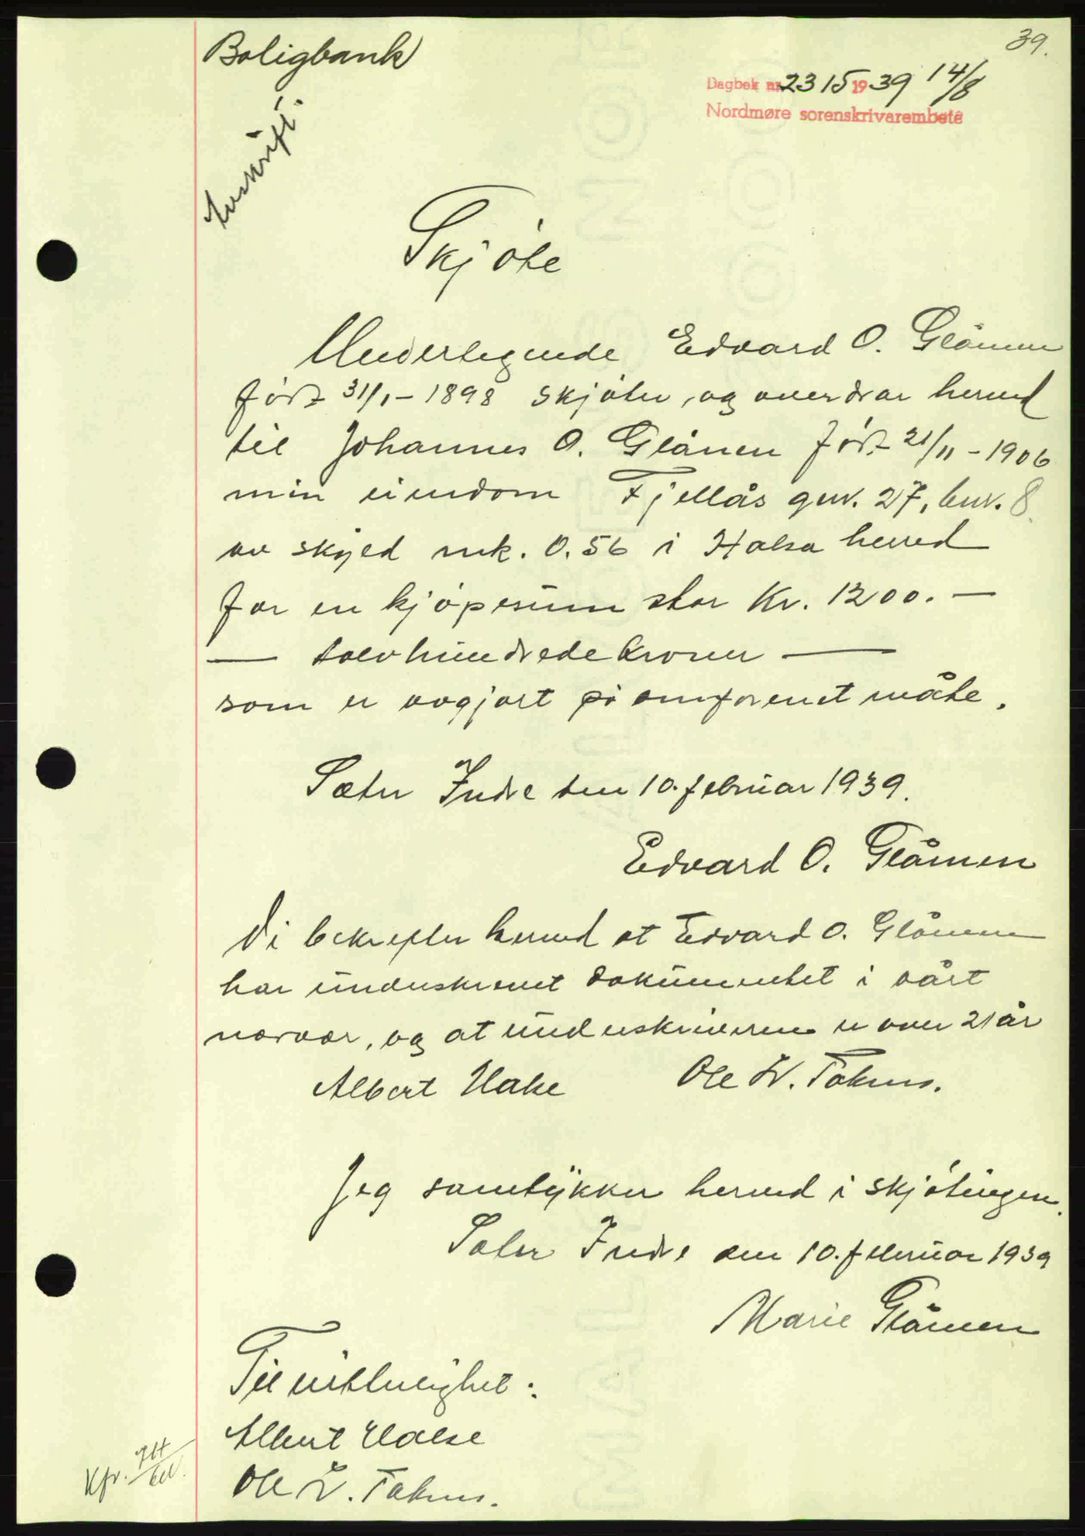 39.
Boligbank
Avskrift.
Dagbok nr. 2315 1939 14/8
Nordmøre sorenskrivarembete
Skjöte
Undertegnede Edvard O. Glåmen
född 31/1-1898 skjöter, og overdrar herved
til Johannes O. Glåmen född 21/11-1906
min eiendom Fjellås gnr. 27, bnr. 8
av skyld mk. 0.56 i Halsa herred
for en kjöpesum stor Kr. 1200.—
— tolvhundredekroner —
som er avgjort på omforenet måte.
Sæter Indre den 10. februar 1939.
Edvard O. Glåmen
Vi bekrefter herved at Edvard O. Glåmen
har underskrevet dokumentet i vårt
nærvær, og at underskriveren er over 21 år
Albert Halse Ole L. Faknes.
Jeg samtykker herved i skjötingen.
Sæter Indre den 10. februar 1939
Marie Glåmen
Til vitterlighet:
Albert Halse
Ole L. Faknes.
Kfr.